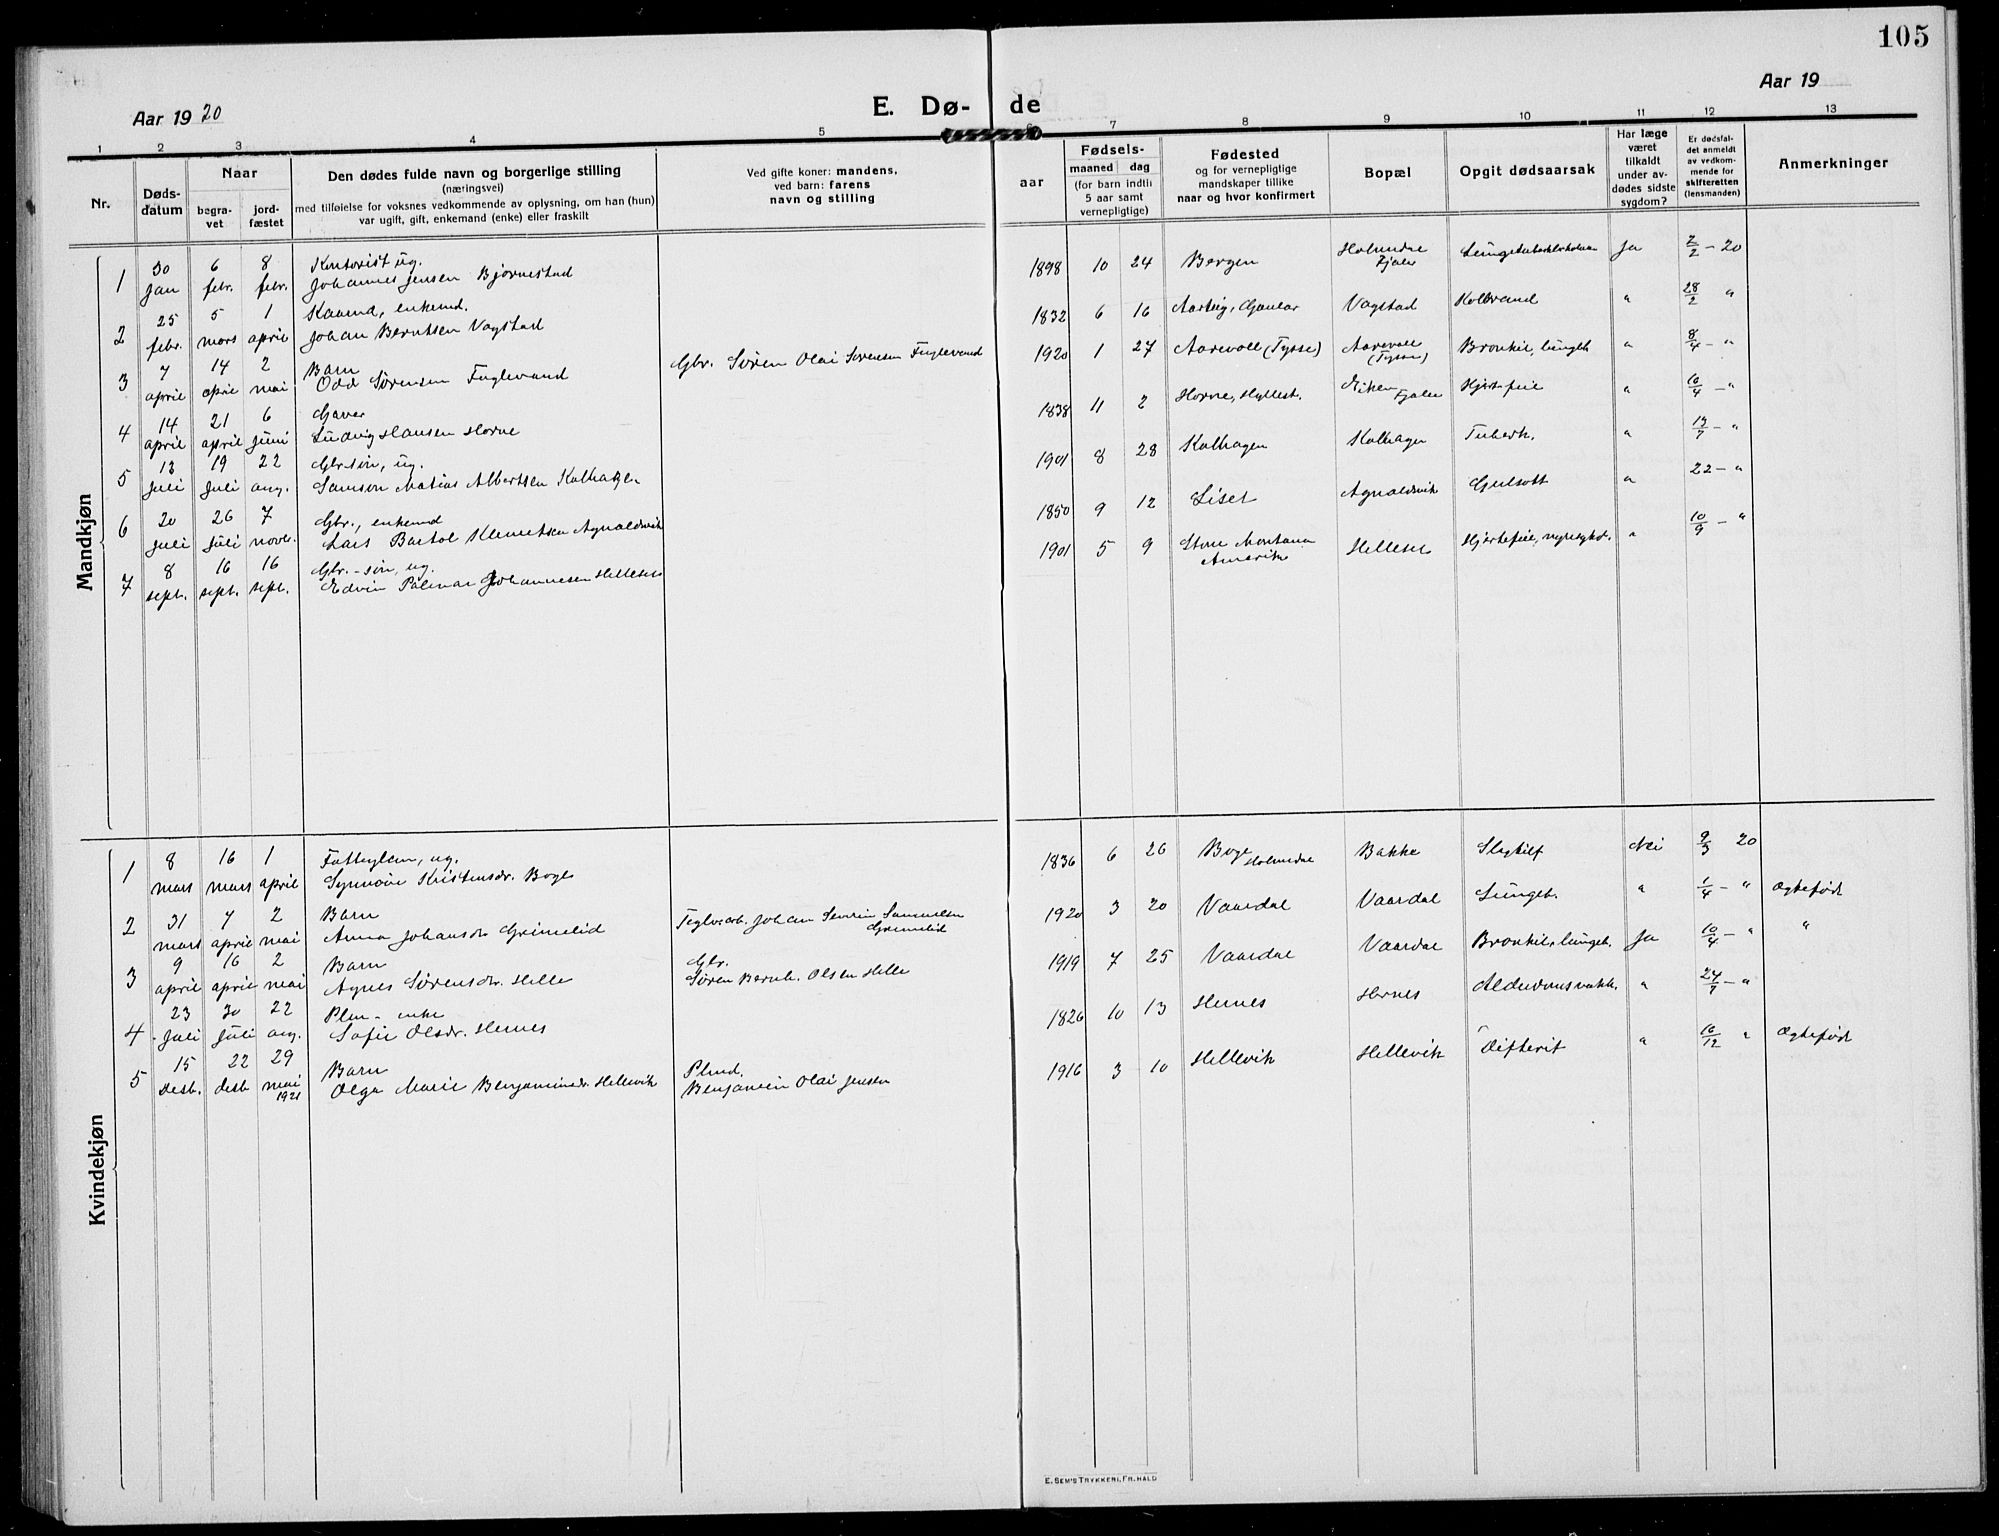 105
Aar 1920
E. Dø- de
Aar 19
1 2 3 4 5 6 7 8 9 10 11 12 13
Nr.
Døds-
datum
Naar
begra-
vet
jord-
fæstet
Den dødes fulde navn og borgerlige stilling
(næringsvei)
med tilføielse for voksnes vedkommende av oplysning, om han (hun)
var ugift, gift, enkemand (enke) eller fraskilt
Ved gifte koner: mandens,
ved barn: farens
navn og stilling
Fødsels-
aar
maaned dag
(for barn indtil
5 aar samt
vernepligtige)
Fødested
og for vernepligtige
mandskaper tillike
naar og hvor konfirmert
Bopæl
Opgit dødsaarsak
Har læge
været
tilkaldt
under av-
dødes sidste
sygdom?
Er dødsfal-
det anmeldt
av vedkom-
mende for
skifteretten
(lensmanden)
Anmerkninger
Mandkjøn
30 6 8 Kontorist ug.
1 jan febr. febr. Johannes Jensen Bjørnestad
1898 10 24 Bergen Holmedal Fjaler Ja 7/2 - 20
25 5 1 Kaarmd, enkemd.
2 febr. mars april Johan Berntsen Vagstad
1832 6 16 Aarteig, Gaular Vagstad Koldbrand " 28/2 "
7 14 2 Barn
3 april april mai Odd Sørensen Fuglevand
Gbr. Søren Olai Sørensen Fuglevand
1920 1 27 Aarevoll (Tysse) Aarevoll (Tysse) Bronkit, lungeb. " 8/4 - "
14 21 6 Gaver
4 april april juni Ludvig Hansen Horne
1838 11 2 Horne, Hyllest. Eiken Fjaler Hjertefeil " 16/4 - "
13 19 22 Gbr søn, ug.
5 juli juli aug. Samson Matias Albertsen Kolhagen
1901 8 28 Kolhagen Kolhagen Tuberk. " 13/7 - "
20 26 7 Gbr., enkemd
6 juli juli novb. Lars Bertol Klemetsen Agnaldsvik
1850 9 12 Liset Agnaldsvik Gulsott " 22 - "
8 16 16 Gbr. - søn, ug.
7 sept. sept. sept. Edvin Palmar Johannesen Helleset
1901 5 9 Montana Amerika Helleset Hjertefeil, nyresykd. " 10/9 - "
Kvindekjøn
8 16 1 Fattiglem, ug.
1 mars mars april Synnøve Kristensdr. Boge
1836 6 26 Boge Holmedal Bakke Slagtilf Nei 9/3 20
31 7 2 Barn
2 mars april mai Anna Johansdr. Grimelid
Teglv.arb. Johan Severin Samuelsen
Grimelid
1920 3 20 Vaardal Vaardal Lungeb. " 1/4 - " Ægtefødt
9 16 2 Barn
3 april april mai Agnes Sørensdr. Helle
Gbr.
Søren Bernh. Olsen Helle
1919 7 25 Vaardal Vaardal Bronkit, lungeb. Ja 10/4 - " "
23 30 22 Plm - enke
4 juli juli aug. Sofie Olsdr. Hernes
1826 10 13 Hernes Hernes Alderdomssvakh. " 24/7 - "
15 22 29 Barn
5 desb. desb mai 1921 Olga Marie Benjaminsdr. Hellevik
Plmd.
Benjamin Olai Jensen
1916 3 10 Hellevik Hellevik Difterit " 16/12 " Ægtefødt
E. SEM'S TRYKKERI, FR.HALD